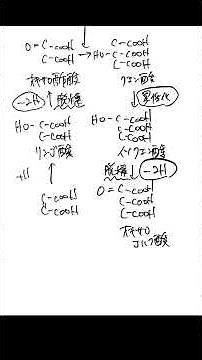 O=C-COOH C-COOH
C-COOH → HO-C-COOH
C-COOH
オキサロ酢酸 クエン酸
-2H 脱水素 異性化
HO-C-COOH HO-C-COOH
C-COOH C-COOH
C-COOH
リンゴ酸 イソクエン酸
+H 脱水素 -2H
C-COOH O=C-COOH
C-COOH C-COOH
C-COOH
オキサロ
コハク酸